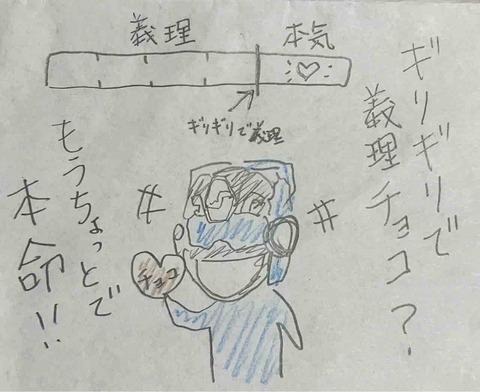 義理
本気
ギリギリで義理
ギリギリで
義理チョコ?
もうちょっとで
本命!!
チョコ